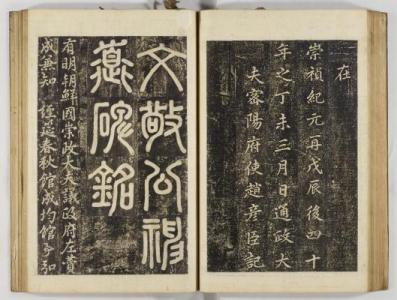 在
崇禎紀元再戊辰後四十
年之丁未三月日通政大
夫密陽府使趙彦臣記
文敬公
墓碑銘
有明朝鮮國崇政大夫議政府左贊
成兼知 經筵春秋館成均館事弘